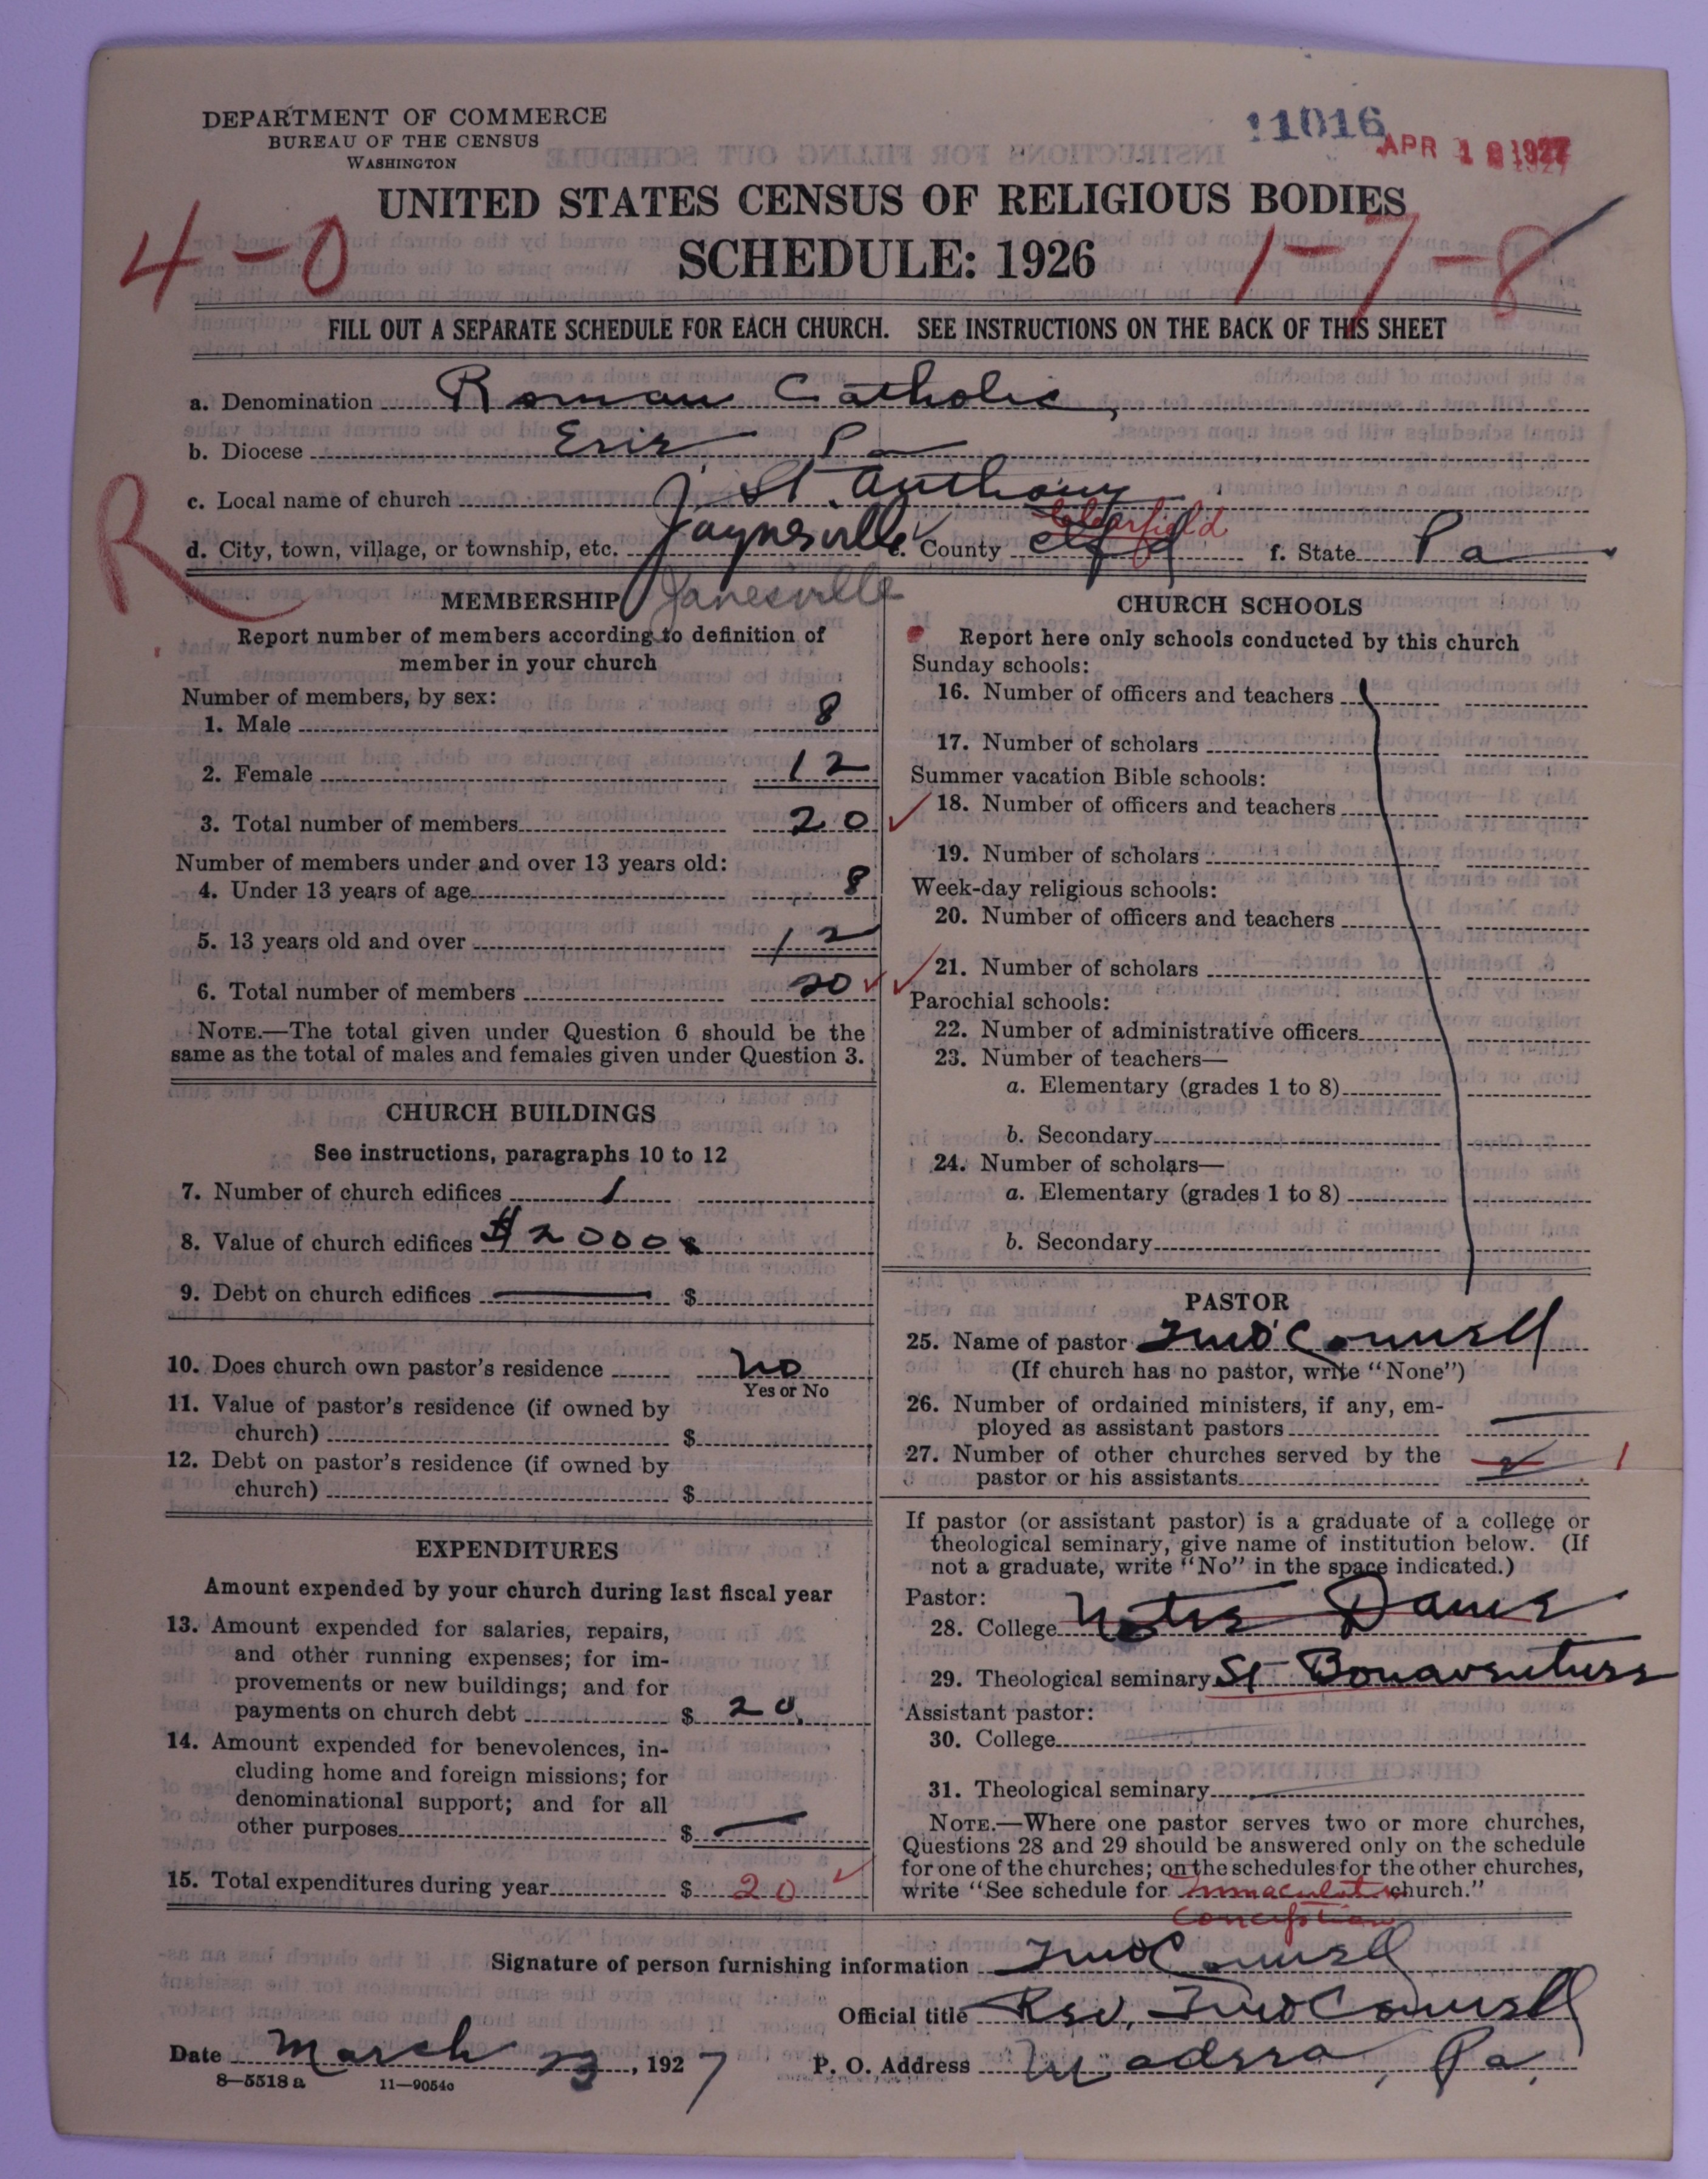 DEPARTMENT OF COMMERCE
BUREAU OF THE CENSUS
WASHINGTON
11016
APR 18 1927
UNITED STATES CENSUS OF RELIGIOUS BODIES
SCHEDULE: 1926
4-0
1-7-8
FILL OUT A SEPARATE SCHEDULE FOR EACH CHURCH. SEE INSTRUCTIONS ON THE BACK OF THIS SHEET
a. Denomination Roman Catholic,
b. Diocese Erie, Pa
c. Local name of church St. Anthony
R
d. City, town, village, or township, etc. Jaynesville e. County Clfd Clearfield f. State Pa
Janesville
MEMBERSHIP
Report number of members according to definition of
member in your church
Number of members, by sex:
1. Male 8
2. Female 12
3. Total number of members 20
Number of members under and over 13 years old:
4. Under 13 years of age 8
5. 13 years old and over 12
6. Total number of members 20
NOTE.—The total given under Question 6 should be the
same as the total of males and females given under Question 3.
CHURCH BUILDINGS
See instructions, paragraphs 10 to 12
7. Number of church edifices 1
8. Value of church edifices $2000
9. Debt on church edifices — $
10. Does church own pastor's residence no
Yes or No
11. Value of pastor's residence (if owned by
church) $
12. Debt on pastor's residence (if owned by
church) $
EXPENDITURES
Amount expended by your church during last fiscal year
13. Amount expended for salaries, repairs,
and other running expenses; for im-
provements or new buildings; and for
payments on church debt $ 20.
14. Amount expended for benevolences, in-
cluding home and foreign missions; for
denominational support; and for all
other purposes $ —
15. Total expenditures during year $ 20
CHURCH SCHOOLS
Report here only schools conducted by this church
Sunday schools:
16. Number of officers and teachers
17. Number of scholars
Summer vacation Bible schools:
18. Number of officers and teachers
19. Number of scholars
Week-day religious schools:
20. Number of officers and teachers
21. Number of scholars
Parochial schools:
22. Number of administrative officers
23. Number of teachers—
a. Elementary (grades 1 to 8)
b. Secondary
24. Number of scholars—
a. Elementary (grades 1 to 8)
b. Secondary
PASTOR
25. Name of pastor
(If church has no pastor, write "None")
26. Number of ordained ministers, if any, em-
ployed as assistant pastors —
27. Number of other churches served by the
pastor or his assistants 1
If pastor (or assistant pastor) is a graduate of a college or
theological seminary, give name of institution below. (If
not a graduate, write "No" in the space indicated.)
Pastor:
28. College Notre Dame
29. Theological seminary St Bonaventures
Assistant pastor:
30. College
31. Theological seminary
NOTE.—Where one pastor serves two or more churches,
Questions 28 and 29 should be answered only on the schedule
for one of the churches; on the schedules for the other churches,
write "See schedule for Immaculate church."
Conception
Signature of person furnishing information
Official title Rev.
Date March 23, 1927
P. O. Address Madera, Pa.
8—5518 a 11—9054o